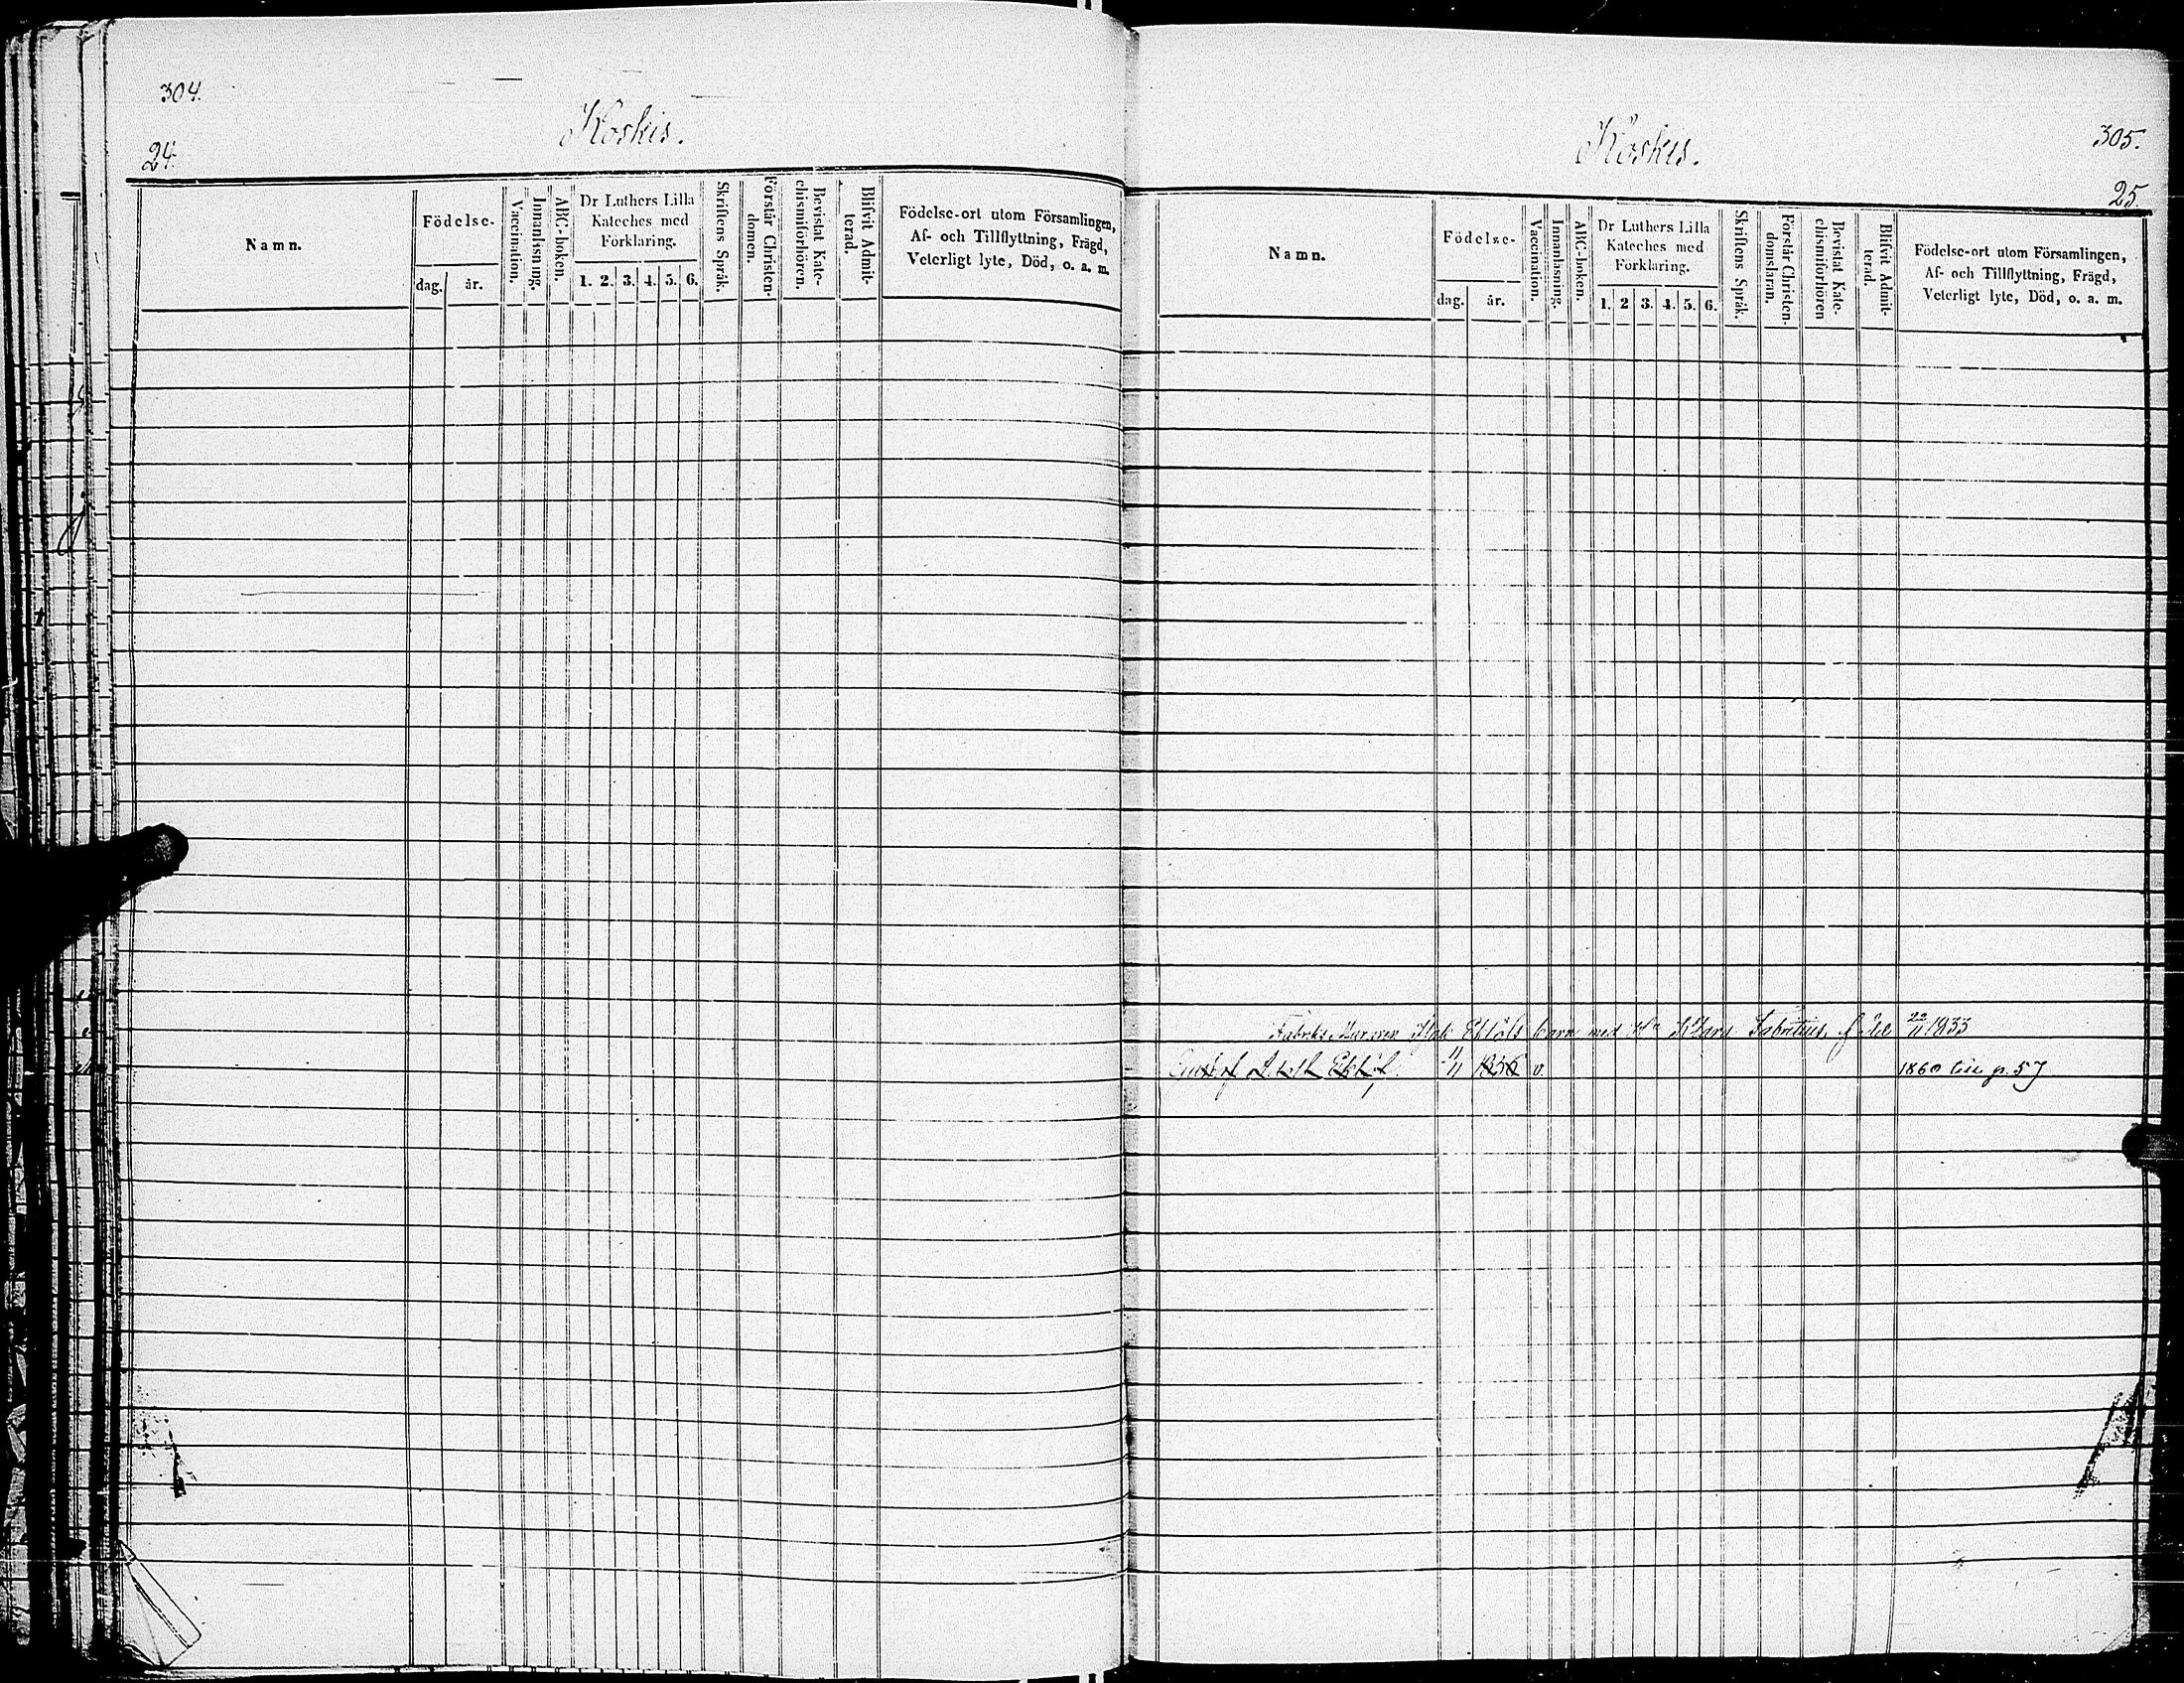 304.
Koskis.
24.
Namn.
Födelse-
dag.
år.
Vaccination.
Innanläsning.
ABC-boken.
Dr Luthers Lilla
Kateches med
Förklaring.
1. 2. 3. 4. 5. 6.
Skriftens Språk.
Förstår Christen-
domen.
Bevistat Kate-
chismiförhören.
Blifvit Admit-
terad.
Födelse-ort utom Församlingen,
Af- och Tillflyttning, Frägd,
Veterligt lyte, Död, o. a. m.
Koskis.
305.
25.
Namn.
Födelse-
dag.
år.
Vaccination.
Innanläsning.
ABC-boken.
Dr Luthers Lilla
Kateches med
Förklaring.
1. 2 3. 4. 5. 6.
Skriftens Språk.
Förstår Christen-
domsläran.
Bevistat Kate-
chismiförhören
Blifvit Admit-
terad.
Födelse-ort utom Församlingen,
Af- och Tillflyttning, Frägd,
Veterligt lyte, Död, o. a. m.
Eklöfs barn med 22/11 1833
Eklöf. 1856 v. 1860 p. 57